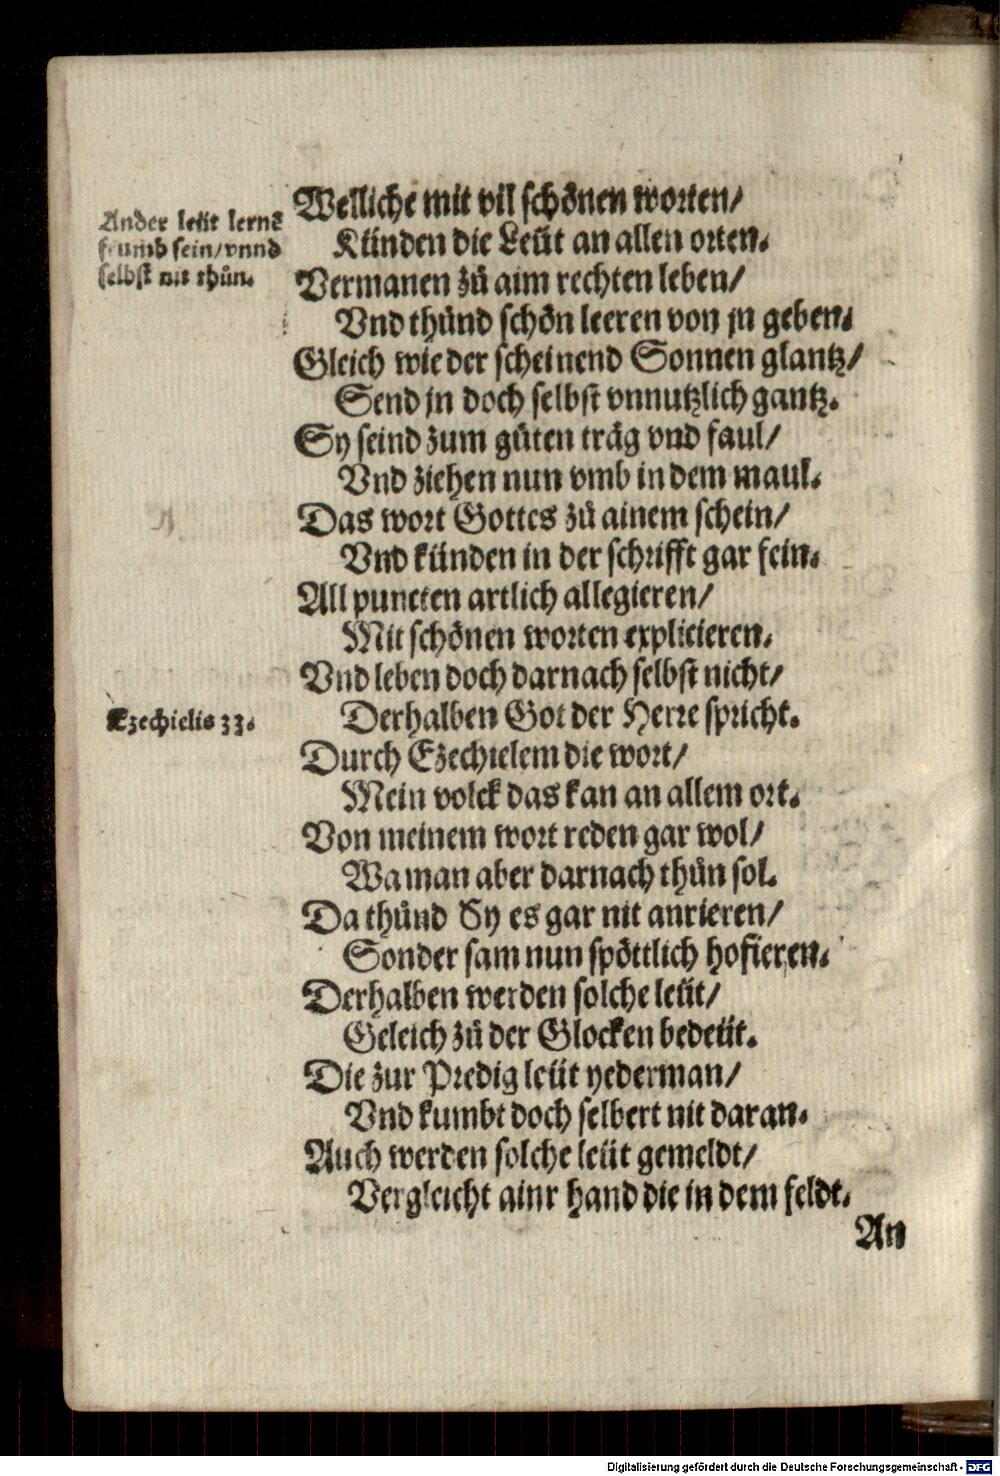 Welliche mit vil schönen worten/
Ander leüt lernē
frumb sein/vnnd
selbst nit thůn.
Künden die Leüt an allen orten.
Vermanen zů aim rechten leben/
Vnd thůnd schön leeren von jn geben.
Gleich wie der scheinend Sonnen glantz/
Send jn doch selbst vnnutzlich gantz.
Sy seind zum gůten träg vnd faul/
Vnd ziehen nun vmb in dem maul.
Das wort Gottes zů ainem schein/
Vnd künden in der schrifft gar fein.
All puncten artlich allegieren/
Mit schönen worten explicieren.
Vnd leben doch darnach selbst nicht/
Ezechielis 33.
Derhalben Got der Herre spricht.
Durch Ezechielem die wort/
Mein volck das kan an allem ort.
Von meinem wort reden gar wol/
Wa man aber darnach thůn sol.
Da thůnd Sy es gar nit anrieren/
Sonder sam nun spöttlich hofieren.
Derhalben werden solche leüt/
Geleich zů der Glocken bedeüt.
Die zur Predig leüt yederman/
Vnd kumbt doch selbert nit daran.
Auch werden solche leüt gemeldt/
Vergleicht ainr hand die in dem feldt.
An
Digitalisierung gefördert durch die Deutsche Forschungsgemeinschaft - DFG